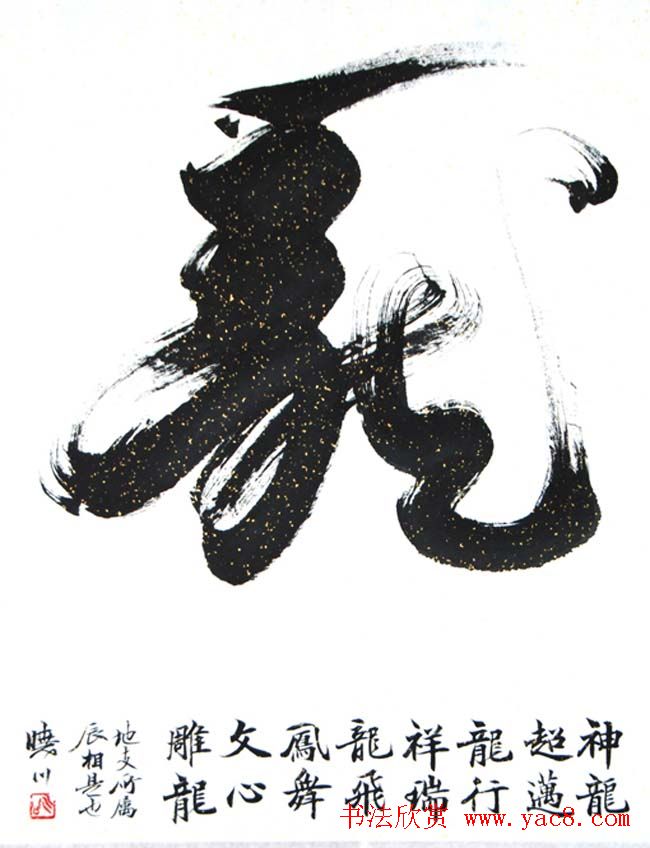 龍
神龍
超邁
龍行
祥瑞
龍飛
鳳舞
文心
雕龍
地支所屬
辰相是也
曉川
书法欣赏 www.yac8.com